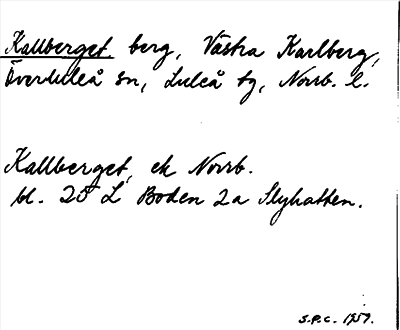 Kallberget, berg, Västra Karlberg,
Överluleå sn, Luleå tg, Norrb. l.
Kallberget, ek Norrb.
bl. 25 L Boden 2a Slyhatten.
S.P.C. 1959.